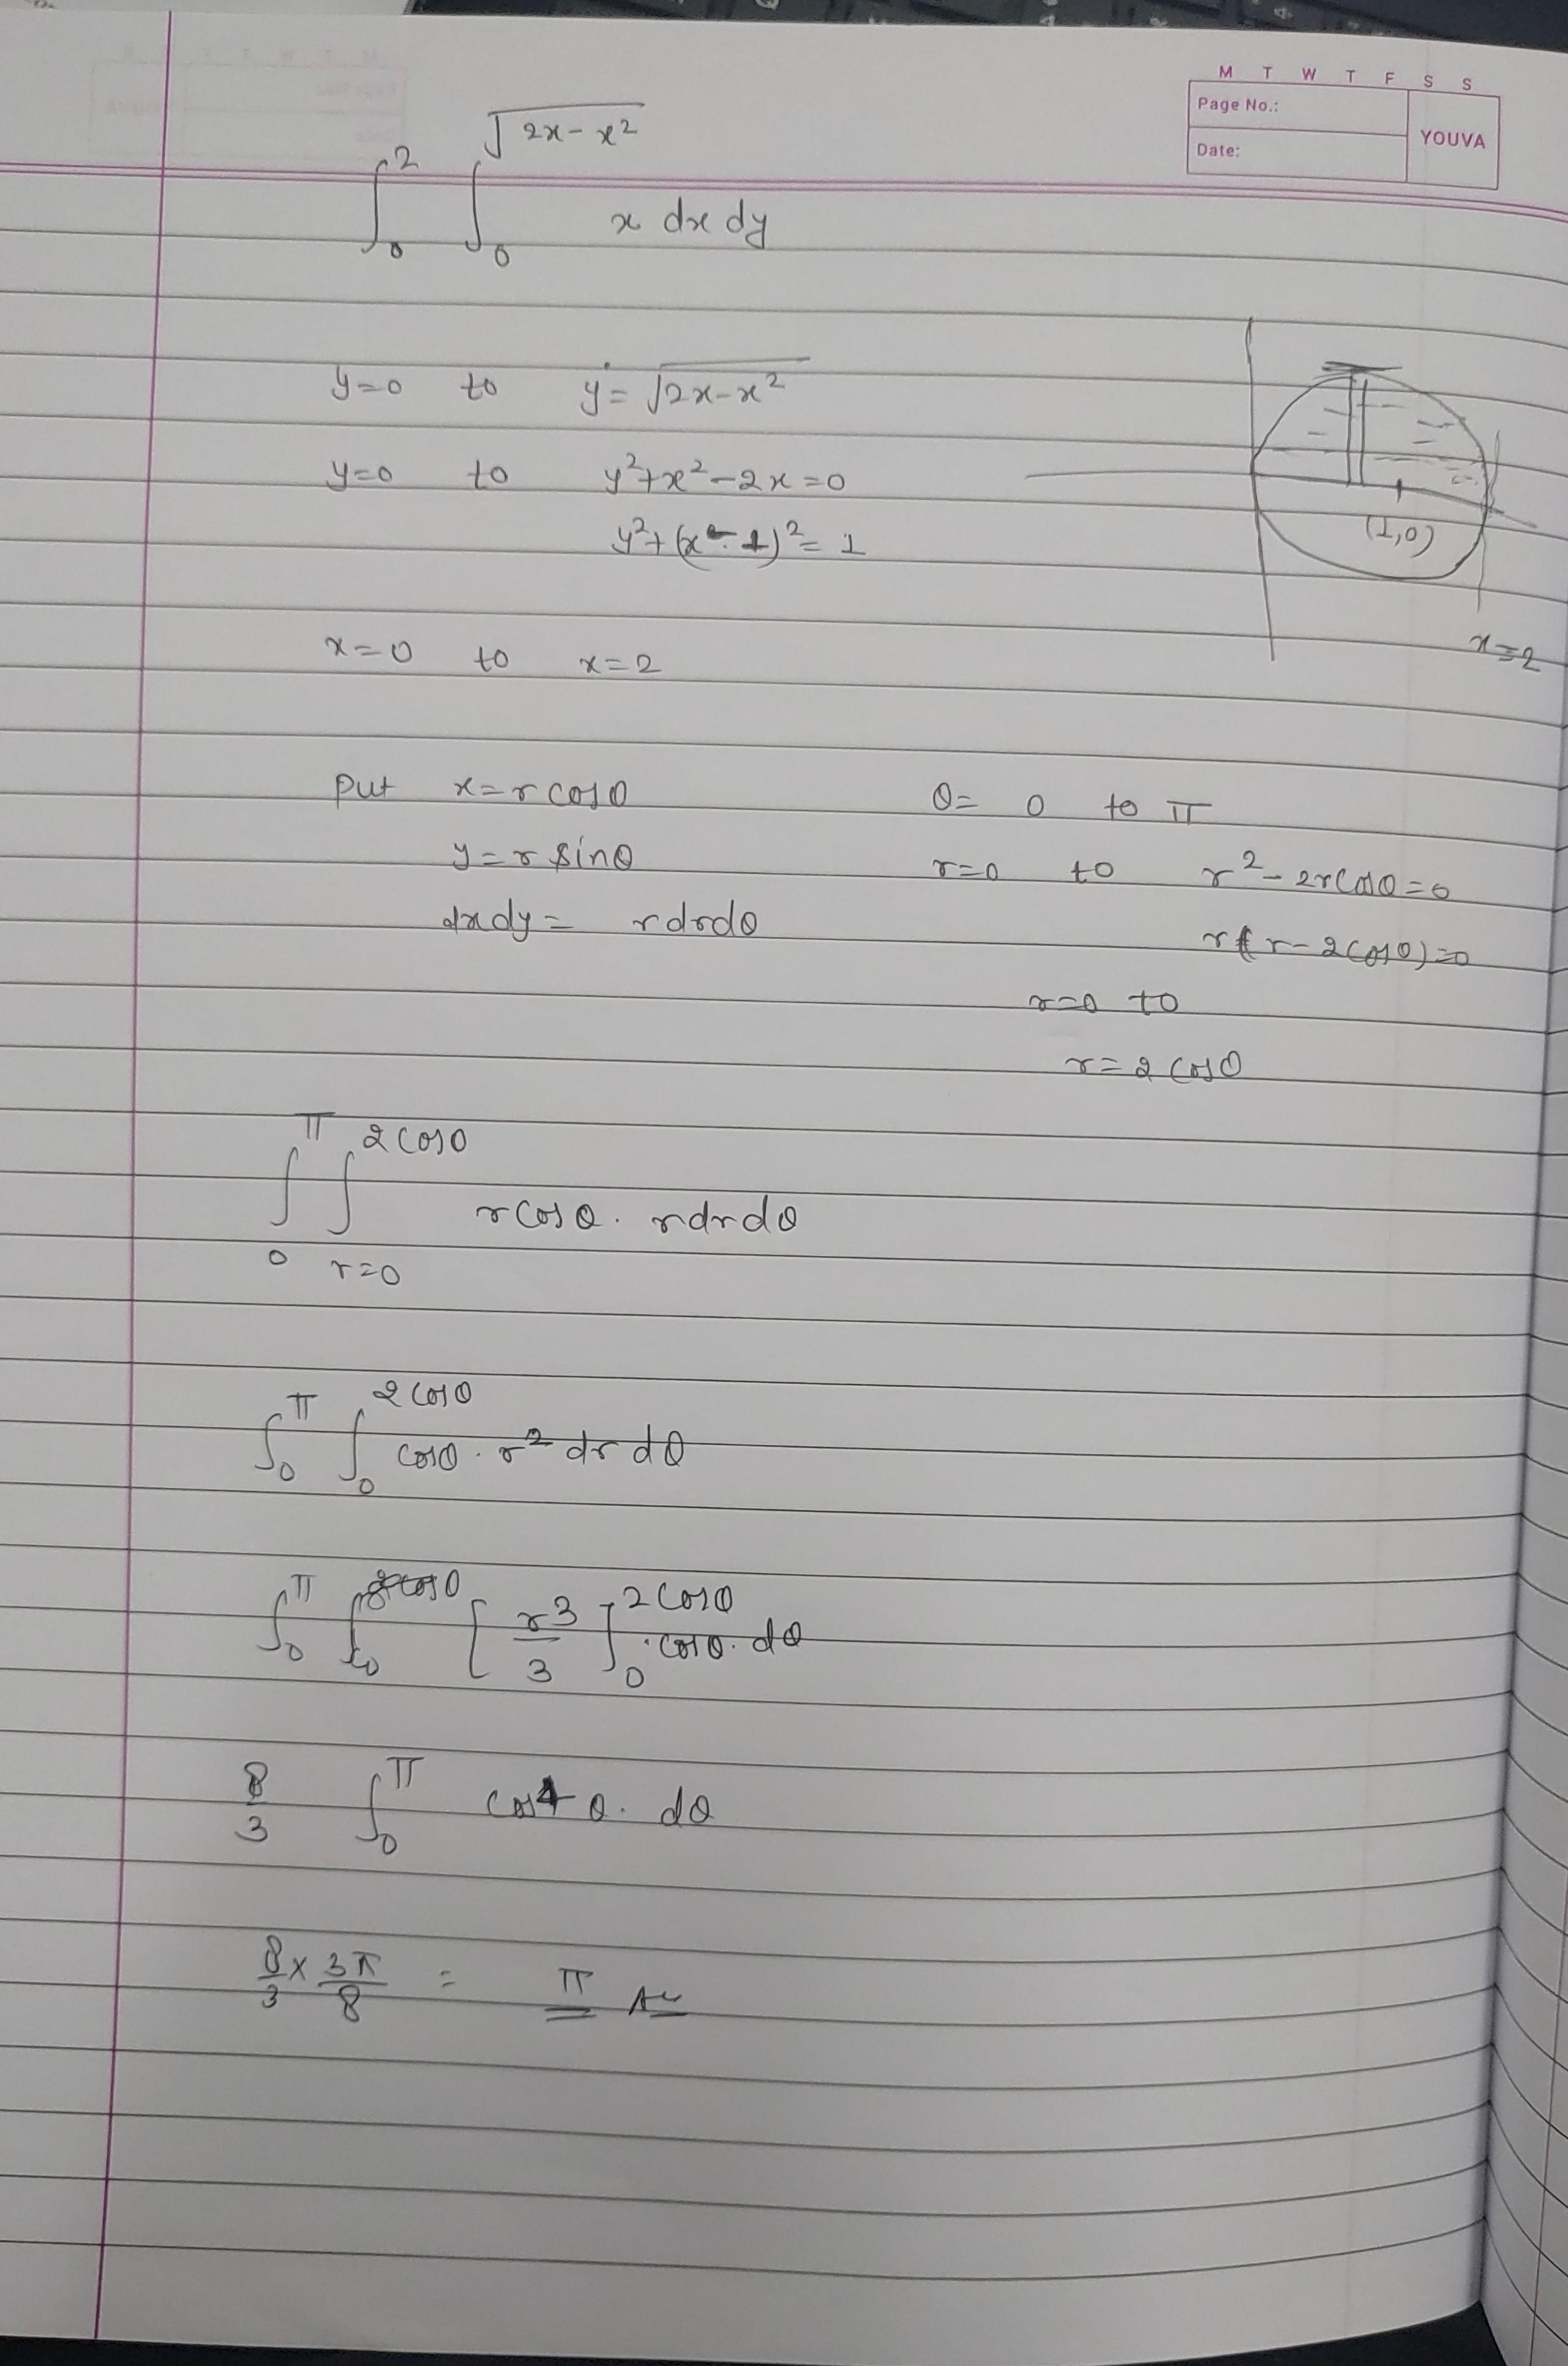 M T W T F S S
Page No.:
Date:
YOUVA
∫₀² ∫₀^√(2x-x²) x dx dy
y=0 to y=√(2x-x²)
y=0 to y²+x²-2x=0
y²+(x-1)²=1
(1,0)
x=2
x=0 to x=2
Put x=rcosθ θ= 0 to π
y=r sinθ r=0 to r²-2rcosθ=0
dxdy= rdrdθ r(r-2cosθ)=0
r=0 to
r=2cosθ
∫₀^π ∫_{r=0}^{2cosθ} rcosθ. rdrdθ
∫₀^π ∫₀^{2cosθ} cosθ . r² dr dθ
∫₀^π [r³/3]₀^{2cosθ} . cosθ. dθ
8/3 ∫₀^π cos⁴θ. dθ
8/3 x 3π/8 = π